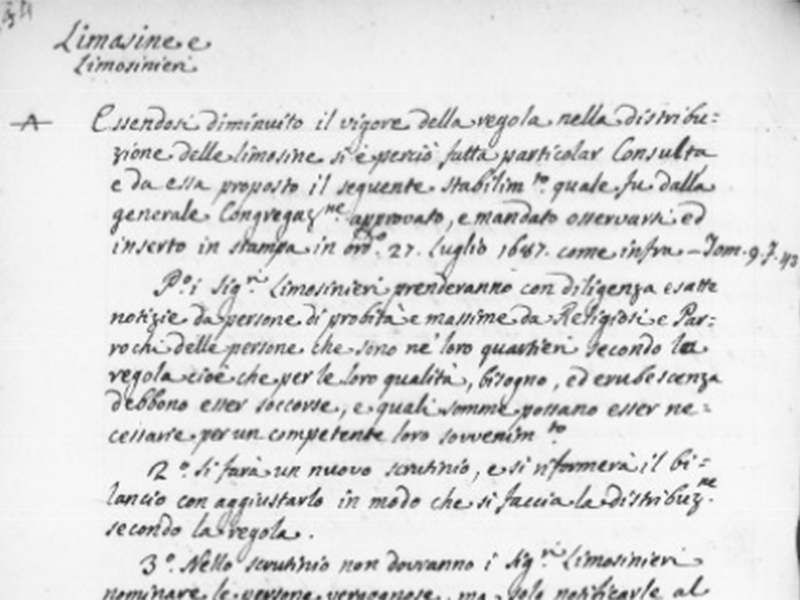 Limosine e
Limosinieri
A
Essendosi diminuito il vigore della regola nella distribu=
zione delle limosine si è perciò fatta particolar Consulta
e da essa proposto il seguente stabilim.to quale fu dalla
generale Congregaz.ne approvato, e mandato osservarsi ed
inserto in stampa in ord.e 27. Luglio 1687. come infra - Tom. 9. f. 43
P.o i Sig.ri Limosinieri prenderanno con diligenza esatte
notizie da persone di probità e massime da Religiosi e Par=
rochi delle persone che sono ne' loro quartieri secondo la
regola cioè che per le loro qualità, bisogno, ed erubescenza
debbono esser soccorse, e quali somme possano esser ne=
cessarie per un competente loro sovvenim.to
2.o Si farà un nuovo scrutinio, e si riformerà il bi=
lancio con aggiustarlo in modo che si faccia la distribuz.ne
secondo la regola.
3.o Nello scrutinio non dovranno i Sig.ri Limosinieri
nominare le persone vergognose, ma solo notificarle al